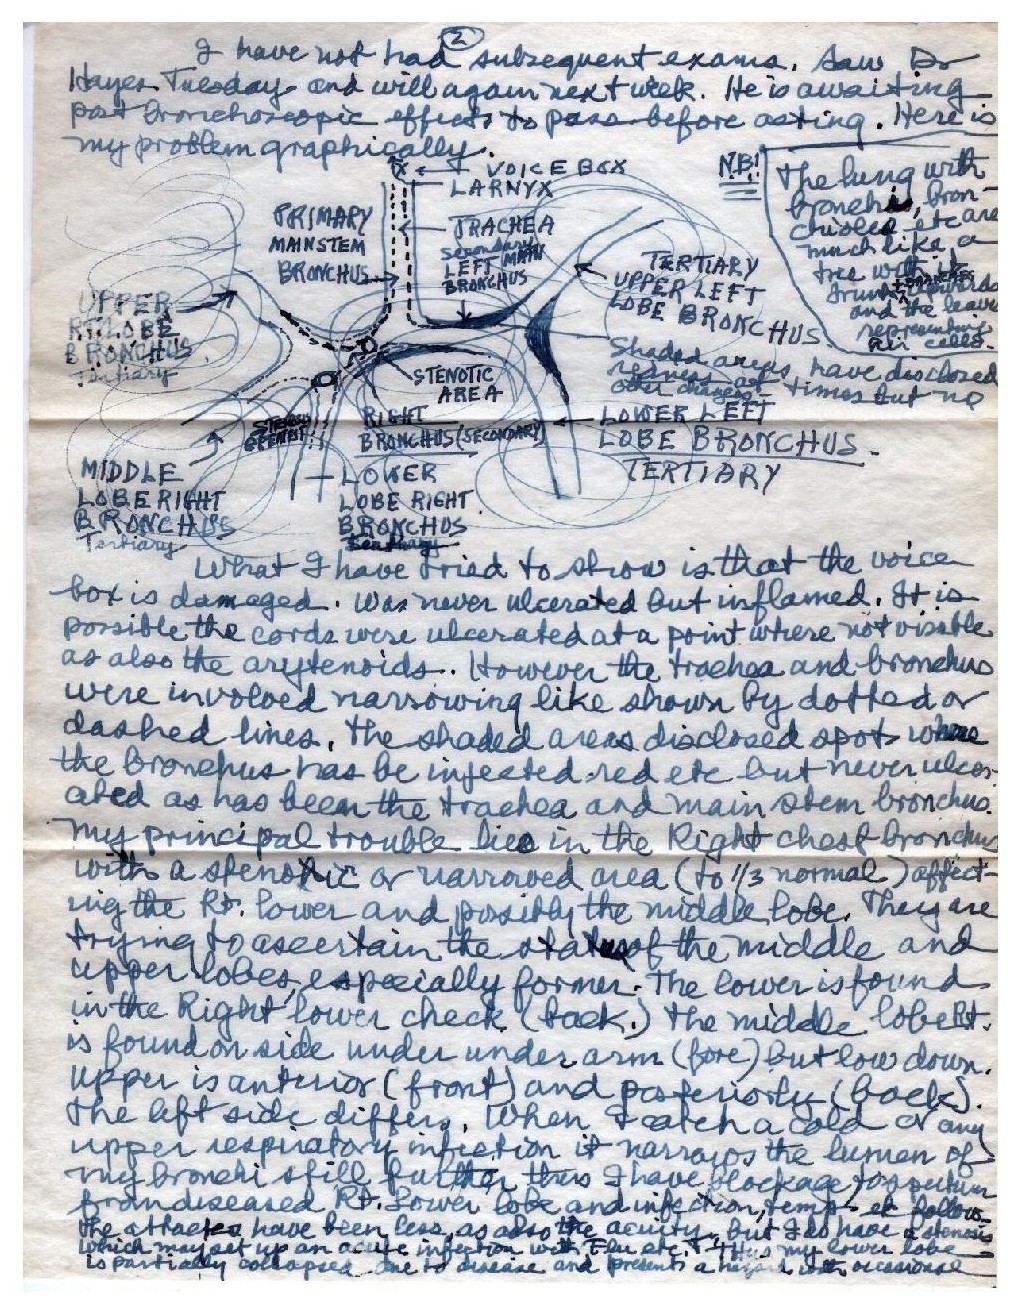 2
I have not had subsequent exams. Saw Dr
Hayes Tuesday and will again next week. He is awaiting
post bronchoscopic effects to pass before acting. Here is
my problem graphically.
VOICE BOX
LARNYX
PRIMARY
MAINSTEM
BRONCHUS
TRACHEA
Secondary
LEFT MAIN
BRONCHUS
N.B.!
The lung with
bronchi, bron-
chioles etc are
much like a
tree with it
trunk + branches
and the leaves
representing
cells.
TERTIARY
UPPER LEFT
LOBE BRONCHUS
UPPER
RT. LOBE
BRONCHUS.
Tertiary
Shaded areas have disclosed
redness at times but no
other changes-
STENOTIC
AREA
RIGHT
BRONCHUS (SECONDARY)
LOWER LEFT
LOBE BRONCHUS.
TERTIARY
MIDDLE
LOBE RIGHT
BRONCHUS
Tertiary
LOWER
LOBE RIGHT
BRONCHUS
Tertiary
What I have tried to show is that the voice
box is damaged. Was never ulcerated but inflamed. It is
possible the cords were ulcerated at a point where not visible
as also the arytenoids. However the trachea and bronchus
were involved narrowing like shown by dotted or
dashed lines. The shaded areas disclosed spots where
the bronchus has be injected-red etc but never ulcer-
ated as has been the trachea and main stem bronchus.
My principal trouble lies in the Right chest bronchus
with a stenotic or narrowed area (to 1/3 normal) affect-
ing the Rt. lower and possibly the middle lobe. They are
trying to ascertain the status of the middle and
upper lobes, especially former. The lower is found
in the Right lower check (back.) The middle lobe Rt.
is found on side under under arm (fore) but low down.
Upper is anterior (front) and posteriorly (back).
The left side differs. When I catch a cold or any
upper respiratory infection it narrows the lumen of
my bronchi still further thus I have blockage to sputum
from diseased Rt. Lower lobe and infection, temp etc follow.
The attacks have been less, as also the acuity, but I do have a stenosis
which may set up an acute infection with Flu etc. Thus my lower lobe
is partially collapsed due to disease and presents a hazard with occasional